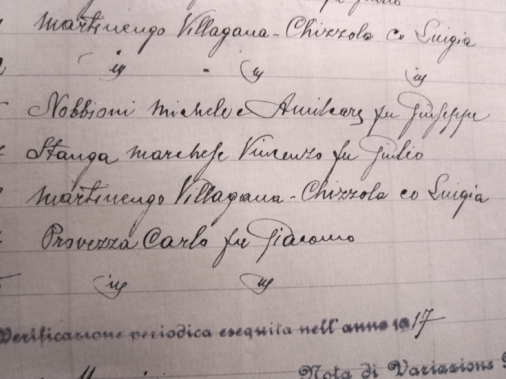 Martinengo Villagana-Chizzola co Luigia
id " id id
Nobbioni Michele e Amilcare fu Giuseppe
Stanga marchese Vincenzo fu Giulio
Martinengo Villagana-Chizzola co Luigia
Provezza Carlo fu Giacomo
id id
Verificazione periodica eseguita nell'anno 1917
Nota di Variazione